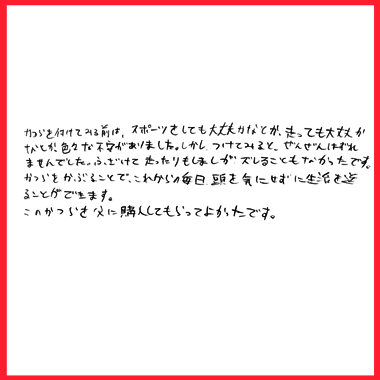 かつらを付けてみる前は、スポーツをしても大丈夫かなとか、走っても大丈夫か
なとか、色々な不安がありました。しかし、つけてみると、ぜんぜんはずれ
ませんでした。ふざけて走ったりもしましたがズレることもなかったです。
かつらをかぶることで、これからの毎日、頭を気にせずに生活を送
ることができます。
このかつらを父に購入してもらってよかったです。